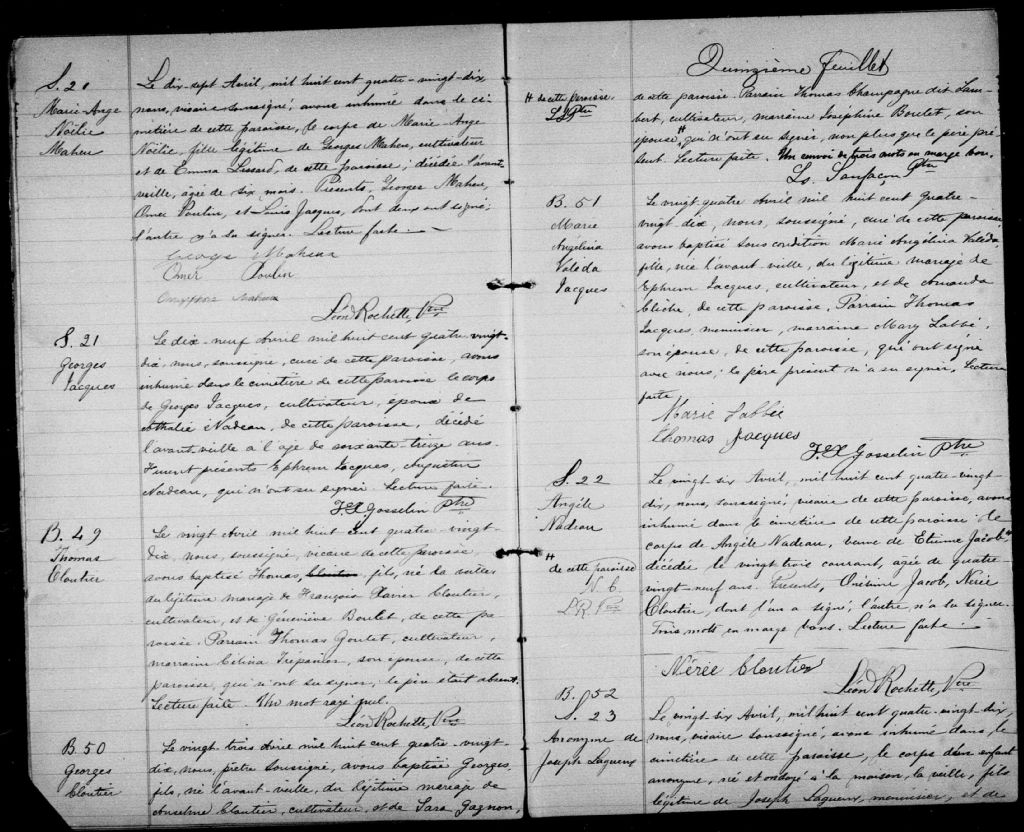 S. 21
Marie-Ange
Noëlie
Maheu
Le dix-sept Avril, mil huit cent quatre-vingt-dix
nous, vicaire soussigné, avons inhumé dans le ci-
metière de cette paroisse, le corps de Marie-Ange
Noëlie, fille légitime de Georges Maheu, cultivateur
et de Emma Lessard, de cette paroisse, décédée l'avant-
veille, agée de six mois. Présents, Georges Maheu,
Omer Poulin, et Louis Jacques, dont deux ont signé;
l'autre n'a su signer. Lecture faite.
Georges Maheu
Omer Poulin
Maheu
Léon Rochette, Vere
S. 21
Georges
Jacques
Le dix-neuf Avril mil huit cent quatre vingt-
dix, nous, soussigné, curé de cette paroisse, avons
inhumé dans le cimetière de cette paroisse le corps
de Georges Jacques, cultivateur, epoux de
Nathalie Nadeau, de cette paroisse, décédé
l'avant-veille à l'age de soixante-treize ans.
Furent présents Ephrem Jacques, Augustin
Nadeau, qui n'ont su signer. Lecture faite.
F.X. Gosselin Ptre
B. 49
Thomas
Cloutier
Le vingt Avril mil huit cent quatre-vingt-
dix, nous, soussigné, vicaire de cette paroisse,
avons baptisé Thomas, Cloutier fils, né la veille
du légitime mariage de François Xavier Cloutier,
cultivateur, et de Géneviève Boulet, de cette pa-
roisse. Parrain Thomas Goulet, cultivateur,
marraine Célina Trépanier, son épouse, de cette
paroisse, qui n'ont su signer, le père était absent.
Lecture faite. Un mot rayé nul.
Léon Rochette, Vere
B. 50
Georges
Cloutier
Le vingt-trois Avril mil huit cent quatre-vingt-
dix, nous, prêtre soussigné, avons baptisé Georges,
fils, né l'avant-veille, du légitime mariage de
Anselme Cloutier, cultivateur, et de Sara Gagnon,
Quinzième feuillet
# de cette paroisse.
L.S. Ptre
de cette paroisse. Parrain Thomas Champagne dit Lam-
bert, cultivateur, marraine Joséphine Boulet, son
épouse # qui n'ont su signer, non plus que le père pré-
sent. Lecture faite. Un envoi de trois mots en marge bon.
Ls. Sanfaçon Ptre
B. 51
Marie
Angelina
Valéda
Jacques
Le vingt quatre Avril mil huit cent quatre-
vingt-dix, nous, soussigné, curé de cette paroisse,
avons baptisé sous condition Marie Angélina Valéda,
fille, née l'avant veille, du légitime mariage de
Ephrem Jacques, cultivateur, et de Amanda
Cliche, de cette paroisse. Parrain Thomas
Jacques menuisier, marraine Mary Labbé,
son épouse, de cette paroisse, qui ont signé
avec nous; le père présent n'a su signer. Lecture
faite
Marie Labbée
Thomas Jacques
F.X. Gosselin Ptre
S. 22
Angèle
Nadeau
# de cette paroisse
L.R. Vere
Le vingt-six Avril, mil huit cent quatre-vingt-
dix, nous, soussigné, vicaire de cette paroisse, avons
inhumé dans le cimetière de cette paroisse le
corps de Angèle Nadeau, veuve de Etienne Jacob #
décédée le vingt trois courant, agée de quatre
vingt-neuf ans. Présents, Onésime Jacob, Nérée
Cloutier, dont l'un a signé; l'autre n'a su signer.
Trois mots en marge bons. Lecture faite.
Nérée Cloutier
Léon Rochette, Vere
B. 52
S. 23
Anonyme de
Joseph Lagueux
Le vingt-six Avril, mil huit cent quatre-vingt-dix,
nous, vicaire soussigné, avons inhumé dans le
cimetière de cette paroisse, le corps d'un enfant
anonyme, né et ondoyé à la maison, la veille, fils
légitime de Joseph Lagueux, menuisier, et de